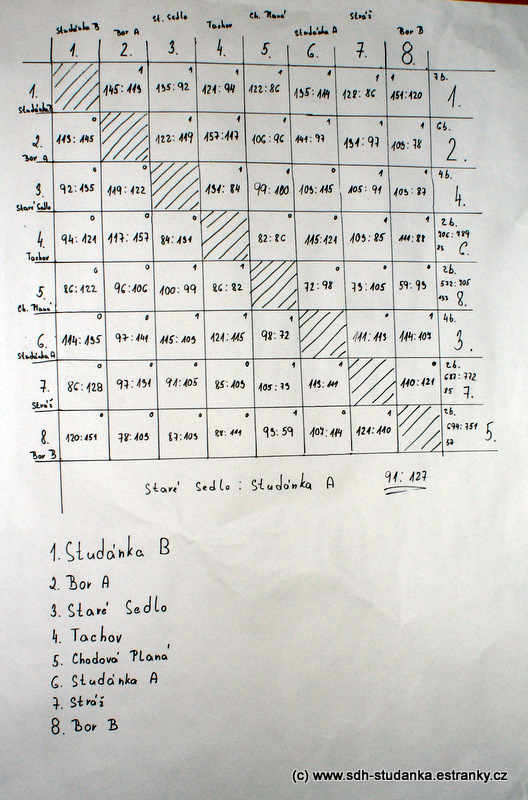 Studánka B Bor A St. Sedlo Tachov Ch. Planá Studánka A Stráž Bor B
1. 2. 3. 4. 5. 6. 7. 8.
1. Studánka B 145:113 1 135:92 1 121:94 1 122:86 1 135:114 1 128:86 1 151:120 1 7b. 1.
2. Bor A 113:145 0 122:119 1 157:117 1 106:96 1 141:97 1 131:97 1 103:78 1 6b. 2.
3. Staré Sedlo 92:135 0 119:122 0 131:84 1 99:100 103:115 0 105:91 1 103:87 1 4b. 4.
4. Tachov 94:121 0 117:157 0 84:131 0 82:86 0 115:121 0 103:85 1 111:88 2b. 706:789 6.
5. Ch. Planá 86:122 0 96:106 0 100:99 1 86:82 1 72:98 0 73:105 0 59:93 0 2b. 572:705 133 8.
6. Studánka A 114:135 0 97:141 0 115:103 1 121:115 1 98:72 1 111:113 0 114:107 1 4b. 3.
7. Stráž 86:128 0 97:131 0 91:105 0 85:103 0 105:73 1 113:111 1 110:121 0 2b. 687:772 85 7.
8. Bor B 120:151 0 78:103 0 87:103 0 88:111 0 93:59 1 107:114 0 121:110 1 2b. 694:751 57 5.
Staré Sedlo : Studánka A 91:127
1. Studánka B
2. Bor A
3. Staré Sedlo
4. Tachov
5. Chodová Planá
6. Studánka A
7. Stráž
8. Bor B
(c) www.sdh-studanka.estranky.cz